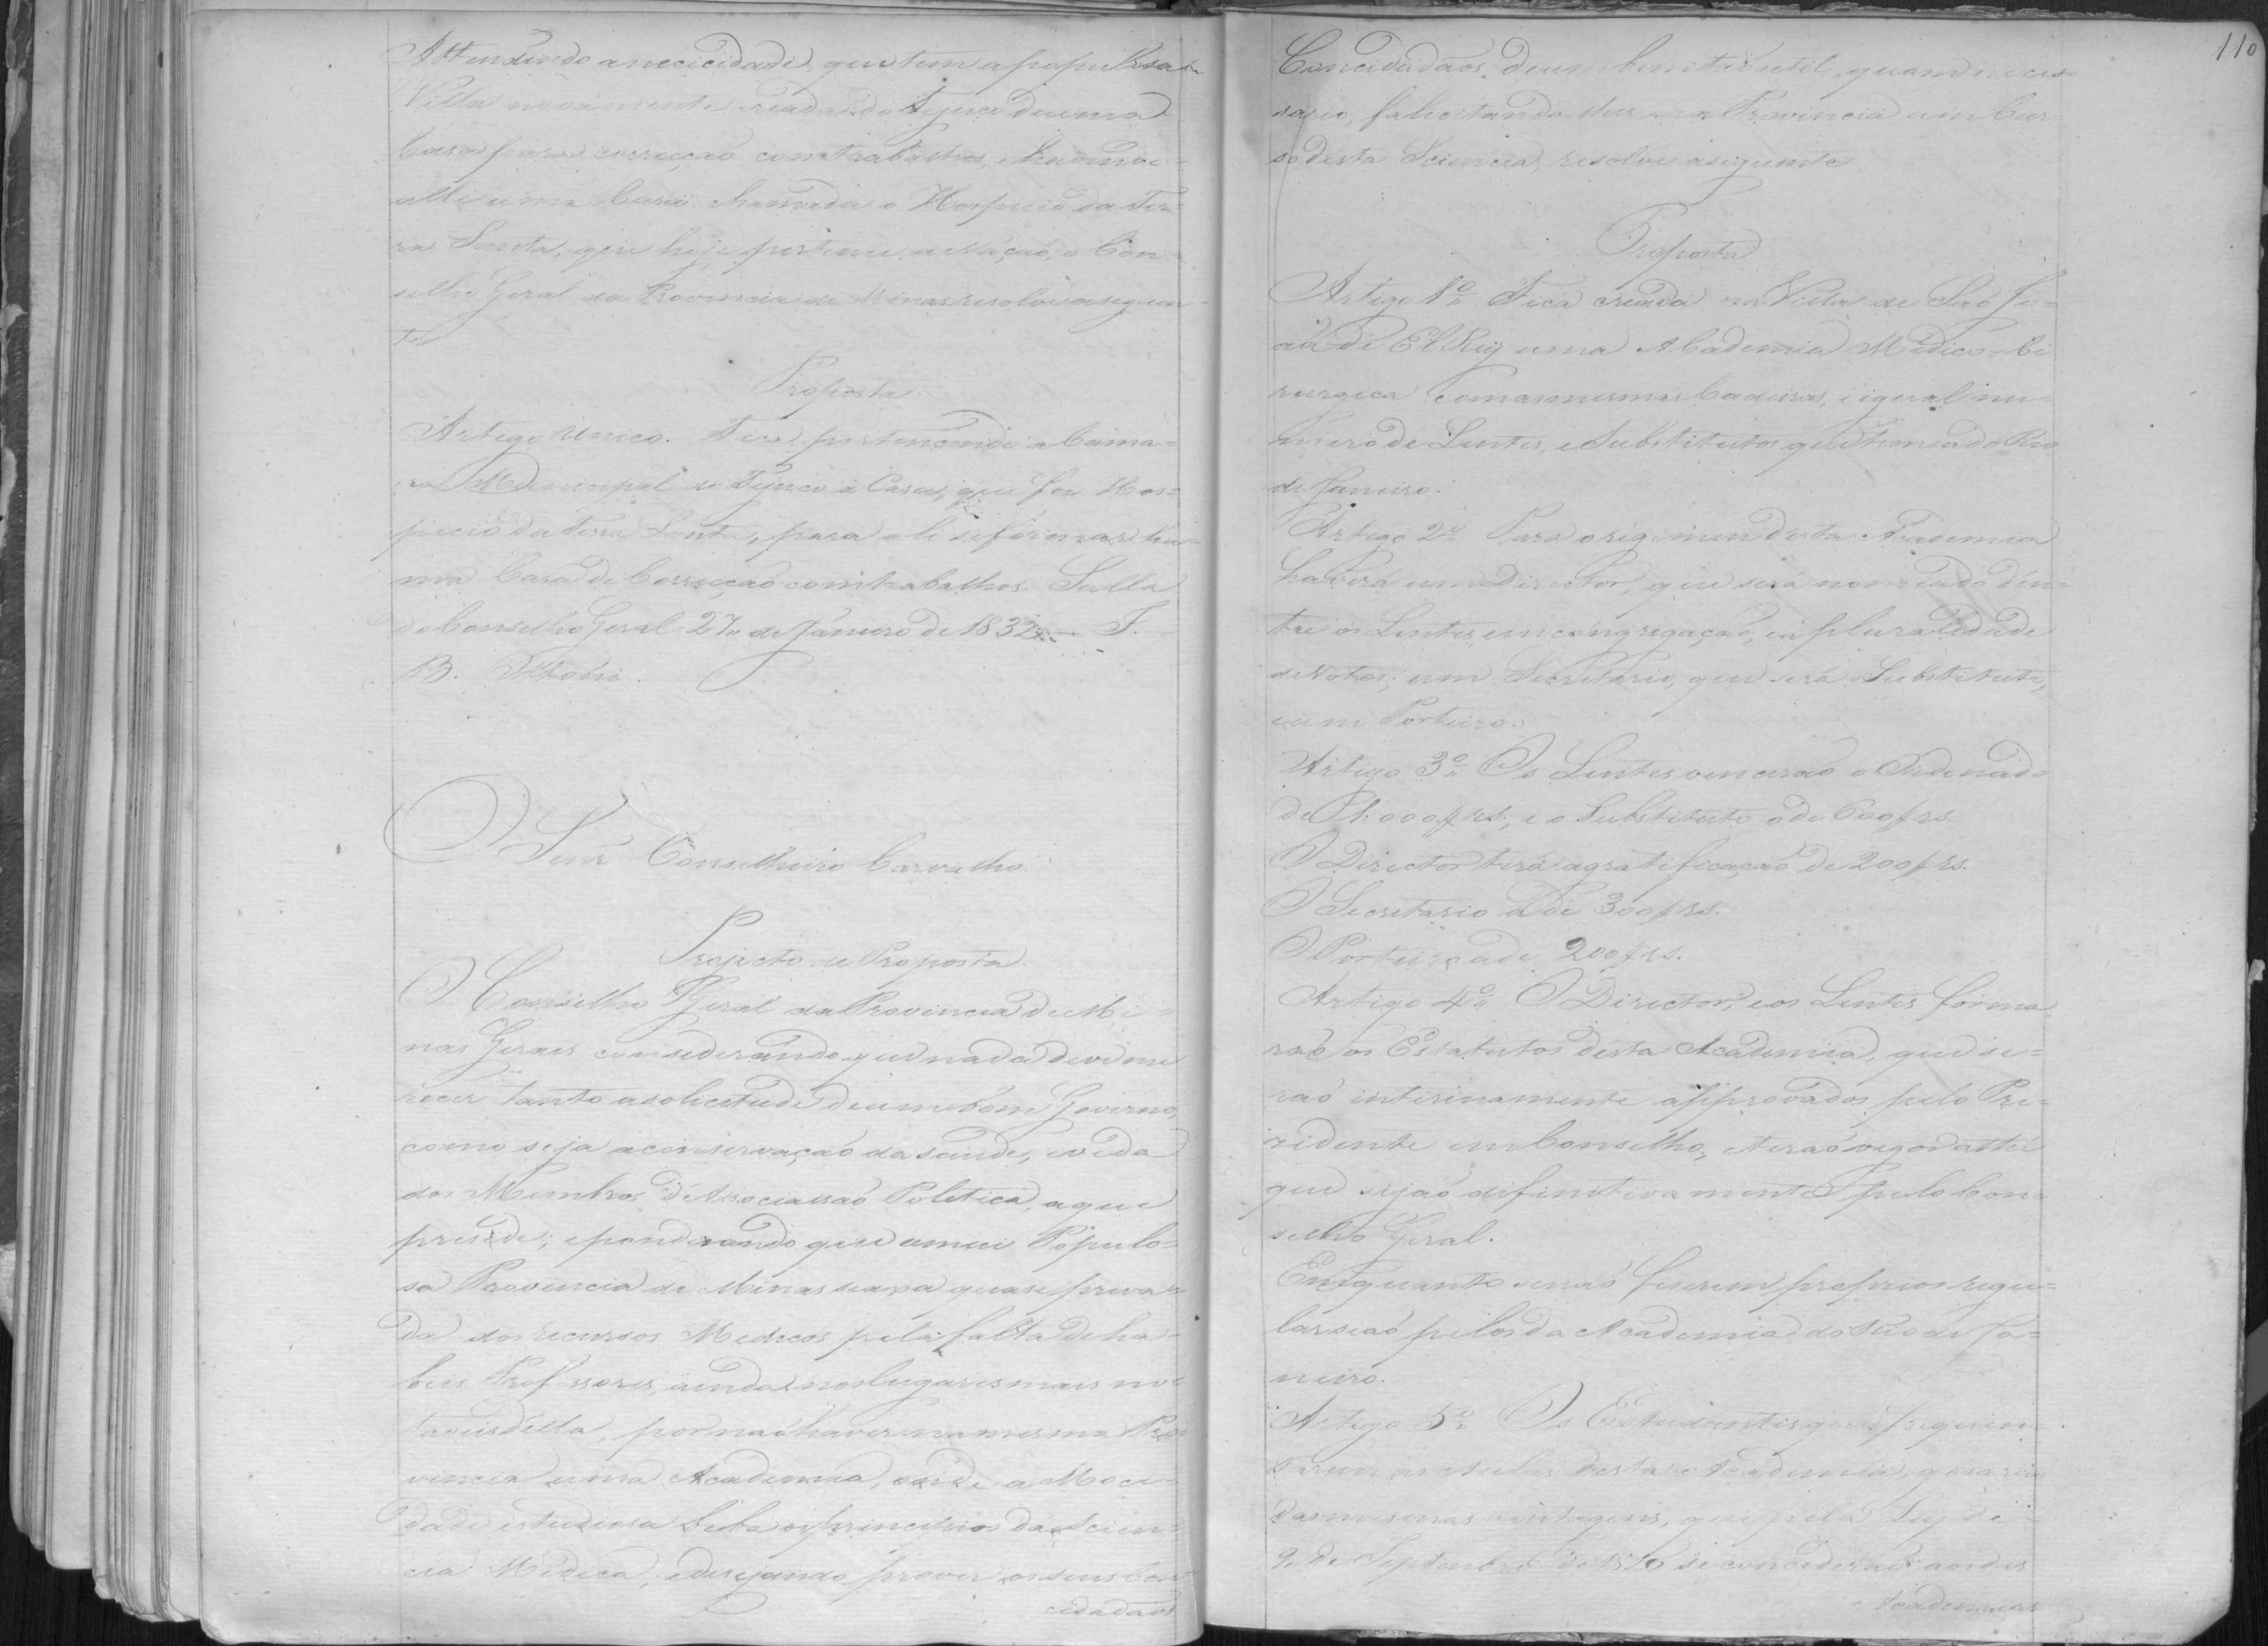 Attendendo a necicidade, que tem a populosa
Villa novamente creada do Tejuco de uma
Casa para correição com trabalhos, e havendo
alli uma Casa chamada o Hospicio da Ter=
ra Santa, que hoje pertence a Nação, o Con=
selho Geral da Provincia de Minas resolve a seguin=
te
Proposta
Artigo Unico. Fica pertencendo a Cama=
ra Municipal do Tejuco a Casa, que foi Hos=
picio da Terra Santa, para ali se formar hu=
ma Casa de Correcção com trabalhos. Salla
do Conselho Geral 27 de Janeiro de 1832 — J.
B. Ottoni.
O Senr Conselheiro Carvalho
Projecto de Proposta
O Conselho Geral da Provincia de Mi=
nas Geraes considerando que nada deve me
recer tanto a solicitude de um bom Governo,
como seja a conservação da saude, e vida
dos Membros d'Associassão Politica, a que
preside; e ponderando que a mui Populo=
sa Provincia de Minas se axa quase priva=
da dos recursos Medicos pela falta de ha=
beis Professores, ainda nos lugares mais no=
taveis della, por não haver na mesma Pro=
vincia uma Academia, onde a Moci=
dade estudiosa beba os principios da Scien=
cia Medica; e desejando prover os seus Con=
cidadãos
110
Concidadãos de um bem tão util, quam neces=
sario, falicitando-lhes na Provincia um Cur=
so desta Sciencia, resolve a seguinte
Proposta
Artigo 1º Fica creada na Villa de São Jo=
ão de El Rey uma Academia Medico-Ci
rurgica com as mesmas Cadeiras, e igual nu=
mero de Lentes, e Substitutos que tem a do Rio
de Janeiro.
Artigo 2º Para o regimen desta Academia
haverá um Director, que será nomeado den=
tre os Lentes em congregação, e á pluralidade
de Votos; um Secretario, que será Substituto,
e um Porteiro.
Artigo 3º Os Lentes vencerão o Ordenado
de 1:000$rs., e o Substituto o de 600$rs.
O Director terá a gratificação de 200$rs.
O Secretario a de 300$rs.
O Porteiro a de 200$rs.
Artigo 4º O Director, e os Lentes forma
rão os Estatutos desta Academia, que se=
rão interinamente approvados pelo Pre=
zidente em Conselho, e terão vigor athé
que sejão difinitivamente pelo Con=
selho Geral.
Emquanto senão fiserem proprios regu=
larseão pelos da Academia do Rio de Ja=
neiro.
Artigo 5º Os Estudantes que frequen=
tarem as Aulas desta Academia, gosarão
das mesmas vantagens, que pela Ley de
9 de Septembro de 1826 se concederão aos das
Academias